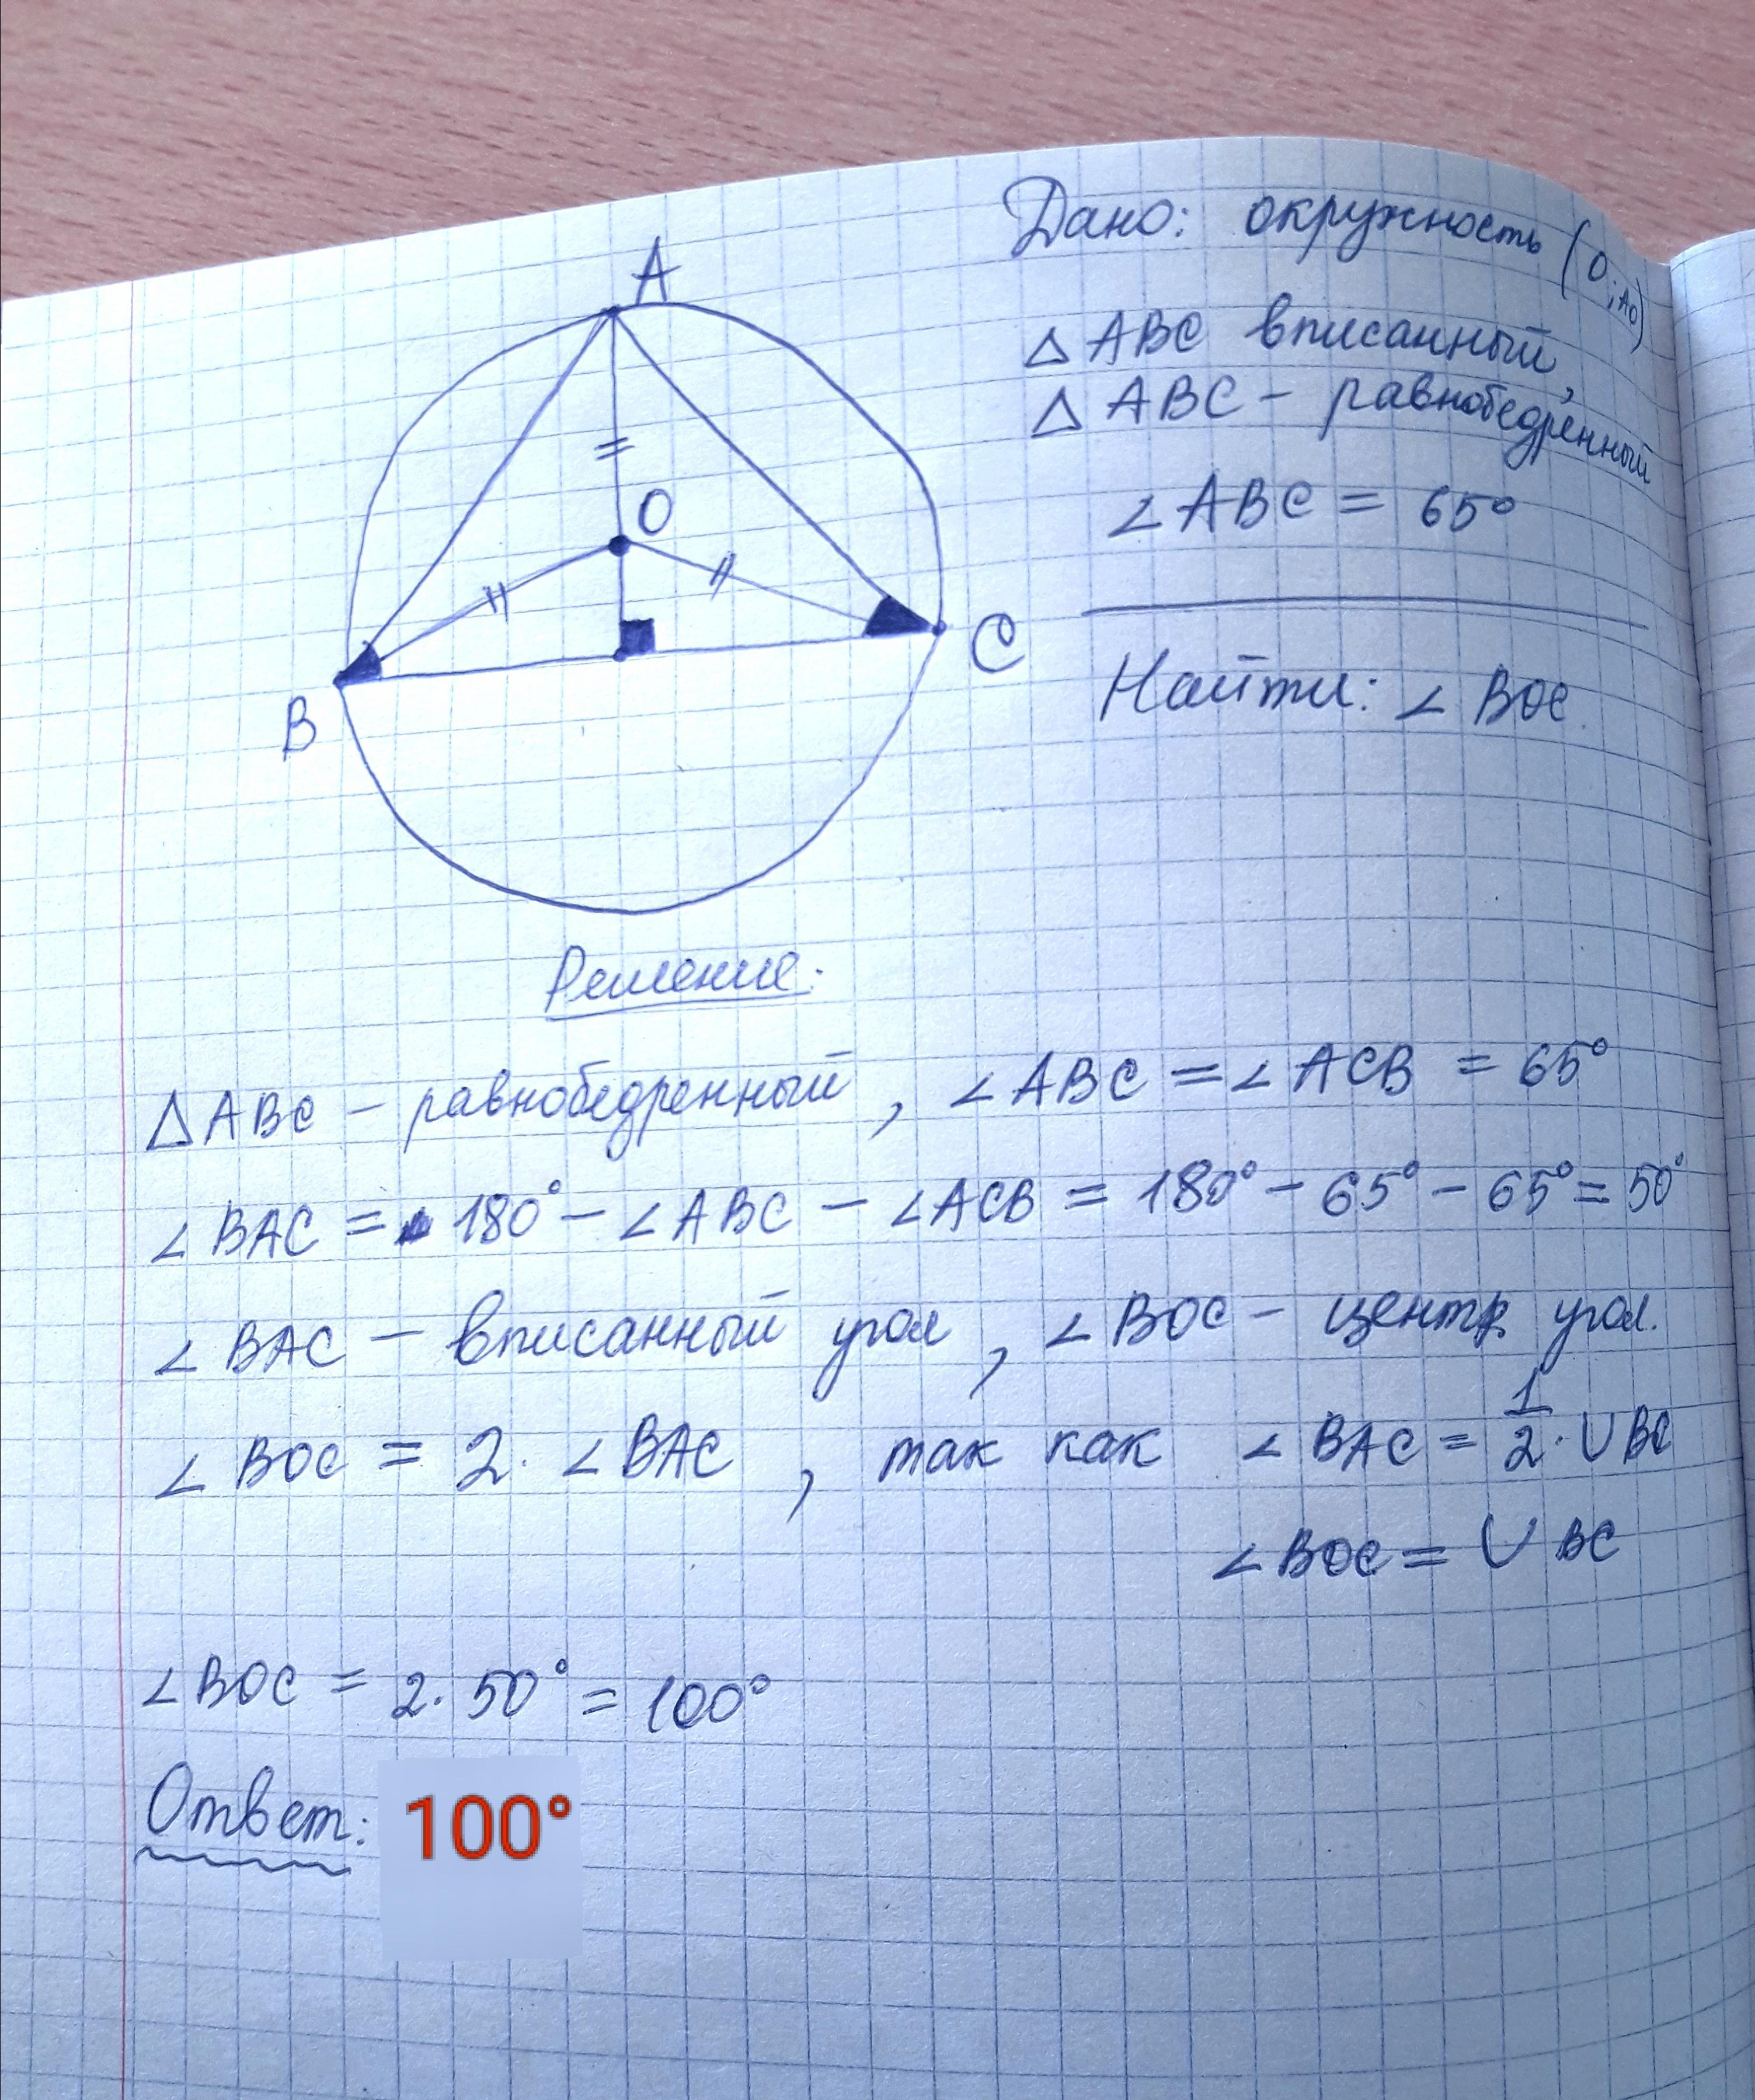 A
O
B
C
Дано: окружность (О; АО)
△ ABC вписанный,
△ ABC - равнобедренный
∠ ABC = 65°
Найти: ∠ BOC
Решение:
△ ABC - равнобедренный, ∠ ABC = ∠ ACB = 65°
∠ BAC = 180° - ∠ ABC - ∠ ACB = 180° - 65° - 65° = 50°
∠ BAC - вписанный угол, ∠ BOC - центр. угол.
∠ BOC = 2 · ∠ BAC, так как ∠ BAC = 1/2 · ∪ BC
∠ BOC = ∪ BC
∠ BOC = 2 · 50° = 100°
Ответ: 100°